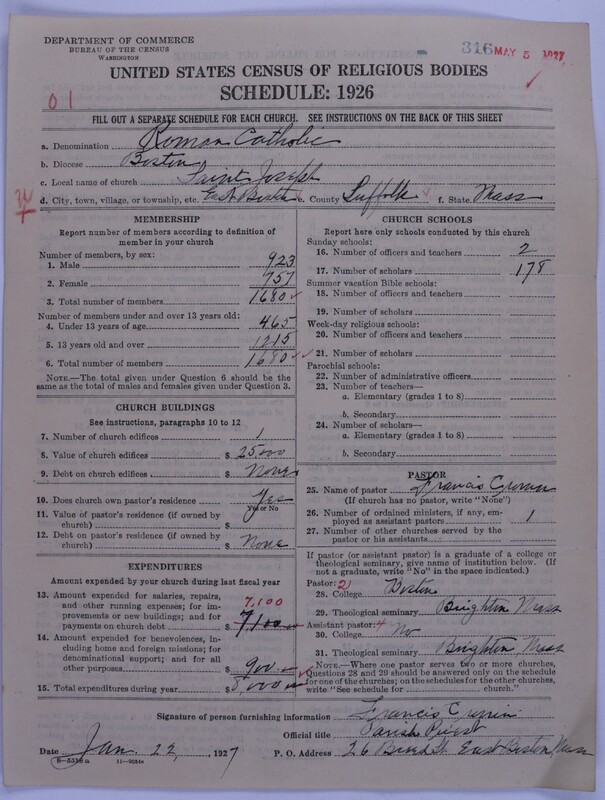 DEPARTMENT OF COMMERCE
BUREAU OF THE CENSUS
WASHINGTON
316 MAY 5 1927
UNITED STATES CENSUS OF RELIGIOUS BODIES
SCHEDULE: 1926
01
FILL OUT A SEPARATE SCHEDULE FOR EACH CHURCH. SEE INSTRUCTIONS ON THE BACK OF THIS SHEET
a. Denomination Roman Catholic
b. Diocese Boston
c. Local name of church Saint Joseph
d. City, town, village, or township, etc. East Boston e. County Suffolk f. State Mass
MEMBERSHIP
Report number of members according to definition of member in your church
Number of members, by sex:
1. Male 923
2. Female 757
3. Total number of members 1680
Number of members under and over 13 years old:
4. Under 13 years of age 465
5. 13 years old and over 1215
6. Total number of members 1680
NOTE.—The total given under Question 6 should be the same as the total of males and females given under Question 3.
CHURCH BUILDINGS
See instructions, paragraphs 10 to 12
7. Number of church edifices 1
8. Value of church edifices $ 25,000
9. Debt on church edifices $ None
10. Does church own pastor's residence Yes
Yes or No
11. Value of pastor's residence (if owned by church) $
12. Debt on pastor's residence (if owned by church) $ None
EXPENDITURES
Amount expended by your church during last fiscal year
13. Amount expended for salaries, repairs, and other running expenses; for improvements on new buildings; and for payments on church debt $ 7,100
7,100
14. Amount expended for benevolences, including home and foreign missions; for denominational support; and for all other purposes $ 900
15. Total expenditures during year $ 8,000
CHURCH SCHOOLS
Report here only schools conducted by this church
Sunday schools:
16. Number of officers and teachers 2
17. Number of scholars 178
Summer vacation Bible schools:
18. Number of officers and teachers
19. Number of scholars
Week-day religious schools:
20. Number of officers and teachers
21. Number of scholars
Parochial schools:
22. Number of administrative officers
23. Number of teachers—
a. Elementary (grades 1 to 8)
b. Secondary
24. Number of scholars—
a. Elementary (grades 1 to 8)
b. Secondary
PASTOR
25. Name of pastor Francis Cronin
(If church has no pastor, write "None")
26. Number of ordained ministers, if any, employed as assistant pastors 1
27. Number of other churches served by the pastor or his assistants
If pastor (or assistant pastor) is a graduate of a college or theological seminary, give name of institution below. (If not a graduate, write "No" in the space indicated.)
Pastor: 2
28. College Boston
29. Theological seminary Brighton Mass
Assistant pastor: 4
30. College No
31. Theological seminary Brighton Mass
NOTE.—Where one pastor serves two or more churches, Questions 28 and 29 should be answered only on the schedule for one of the churches; on the schedules for the other churches, write "See schedule for church."
Signature of person furnishing information Francis Cronin
Official title Parish Priest
Date Jan. 22, 1927 P. O. Address 26 Breed St. East Boston, Mass
8—5518a 11—9034a